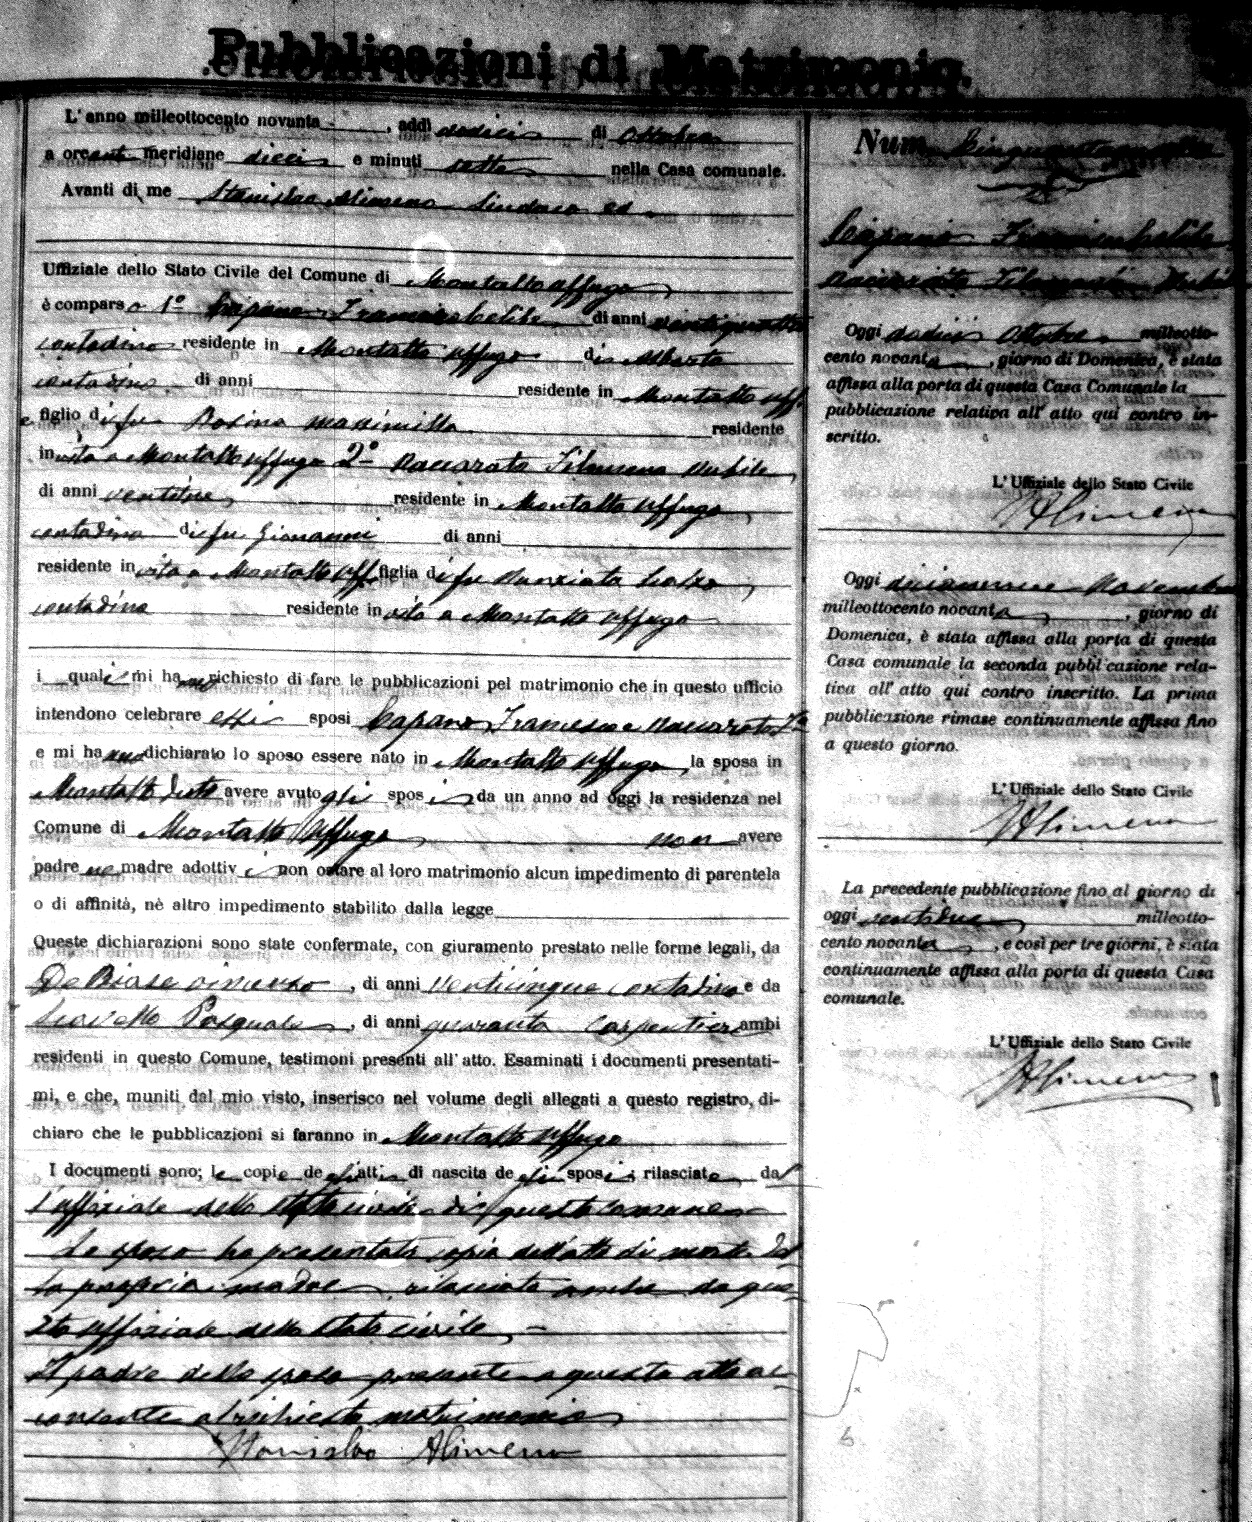 Pubblicazioni di Matrimonio.
L'anno milleottocento novanta, addì dodici di Ottobre
a ore ante meridiane dieci e minuti sette nella Casa comunale.
Avanti di me Stanislao Alimena Sindaco ed
Uffiziale dello Stato Civile del Comune di Montalto Uffugo
è comparso 1º Capano Francesco celibe di anni ventiquattro
contadino residente in Montalto Uffugo di Alberto
contadino di anni residente in Montalto Uff.
e figlio di fu Rosina residente
in vita a Montalto Uffugo 2º Naccarato Filomena nubile
di anni ventitre residente in Montalto Uffugo
contadina di fu Giovanni di anni
residente in vita a Montalto Uff. figlia di fu Nunziata
contadina residente in vita a Montalto Uffugo
i quali mi hanno richiesto di fare le pubblicazioni pel matrimonio che in questo ufficio
intendono celebrare essi sposi Capano Francesco e Naccarato
e mi hanno dichiarato lo sposo essere nato in Montalto Uffugo, la sposa in
Montalto detto avere avuto gli sposi da un anno ad oggi la residenza nel
Comune di Montalto Uffugo non avere
padre ne madre adottivi non ostare al loro matrimonio alcun impedimento di parentela
o di affinità, nè altro impedimento stabilito dalla legge
Queste dichiarazioni sono state confermate, con giuramento prestato nelle forme legali, da
De Biase Vincenzo, di anni venticinque contadino e da
Pasquale, di anni quaranta carpentiere ambi
residenti in questo Comune, testimoni presenti all'atto. Esaminati i documenti presentati-
mi, e che, muniti dal mio visto, inserisco nel volume degli allegati a questo registro, di-
chiaro che le pubblicazioni si faranno in Montalto Uffugo
I documenti sono; le copie degli atti di nascita degli sposi rilasciate dal
l'uffiziale dello stato civile di questo comune
Lo sposo ha presentato copia dell'atto di morte del
la propria madre rilasciata anche da que-
sto uffiziale dello stato civile,
Il padre dello sposo presente a questo atto ac-
consente al richiesto matrimonio
Stanislao Alimena
Num.
Capano Francesco celibe
Naccarato Filomena nubile
Oggi dodici Ottobre milleotto-
cento novanta, giorno di Domenica, è stata
affissa alla porta di questa Casa Comunale la
pubblicazione relativa all'atto qui contro in-
scritto.
L'Uffiziale dello Stato Civile
S Alimena
Oggi diciannove
milleottocento novanta, giorno di
Domenica, è stata affissa alla porta di questa
Casa comunale la seconda pubblicazione rela-
tiva all'atto qui contro inscritto. La prima
pubblicazione rimase continuamente affissa fino
a questo giorno.
L'Uffiziale dello Stato Civile
S Alimena
La precedente pubblicazione fino al giorno di
oggi ventidue milleotto-
cento novanta, e così per tre giorni, è stata
continuamente affissa alla porta di questa Casa
comunale.
L'Uffiziale dello Stato Civile
S Alimena